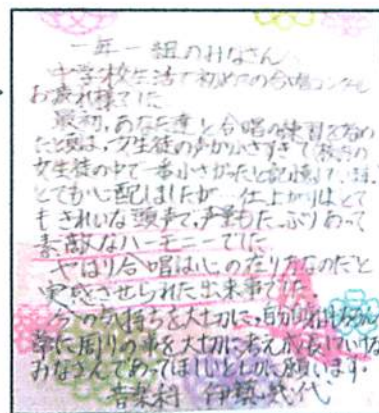 一年一組のみなさんへ
中学校生活で初めての合唱コンクール
お疲れ様でした
最初、あなた達と合唱の練習を始め
たと頃は、女生徒の声が小さすぎて
女生徒の中で一番小さかったと記憶しています。
とても心配しましたが、仕上がりはとて
もきれいな頭声で、声量もたっぷりあって
素敵なハーモニーでした
やはり合唱は心の在り方なのだと
実感させられた出来事でした。
今の気持ちを大切に、自分
常に周りの事を大切に考え成長していける
みなさんであってほしいと心から願います。
音楽科 伊藝